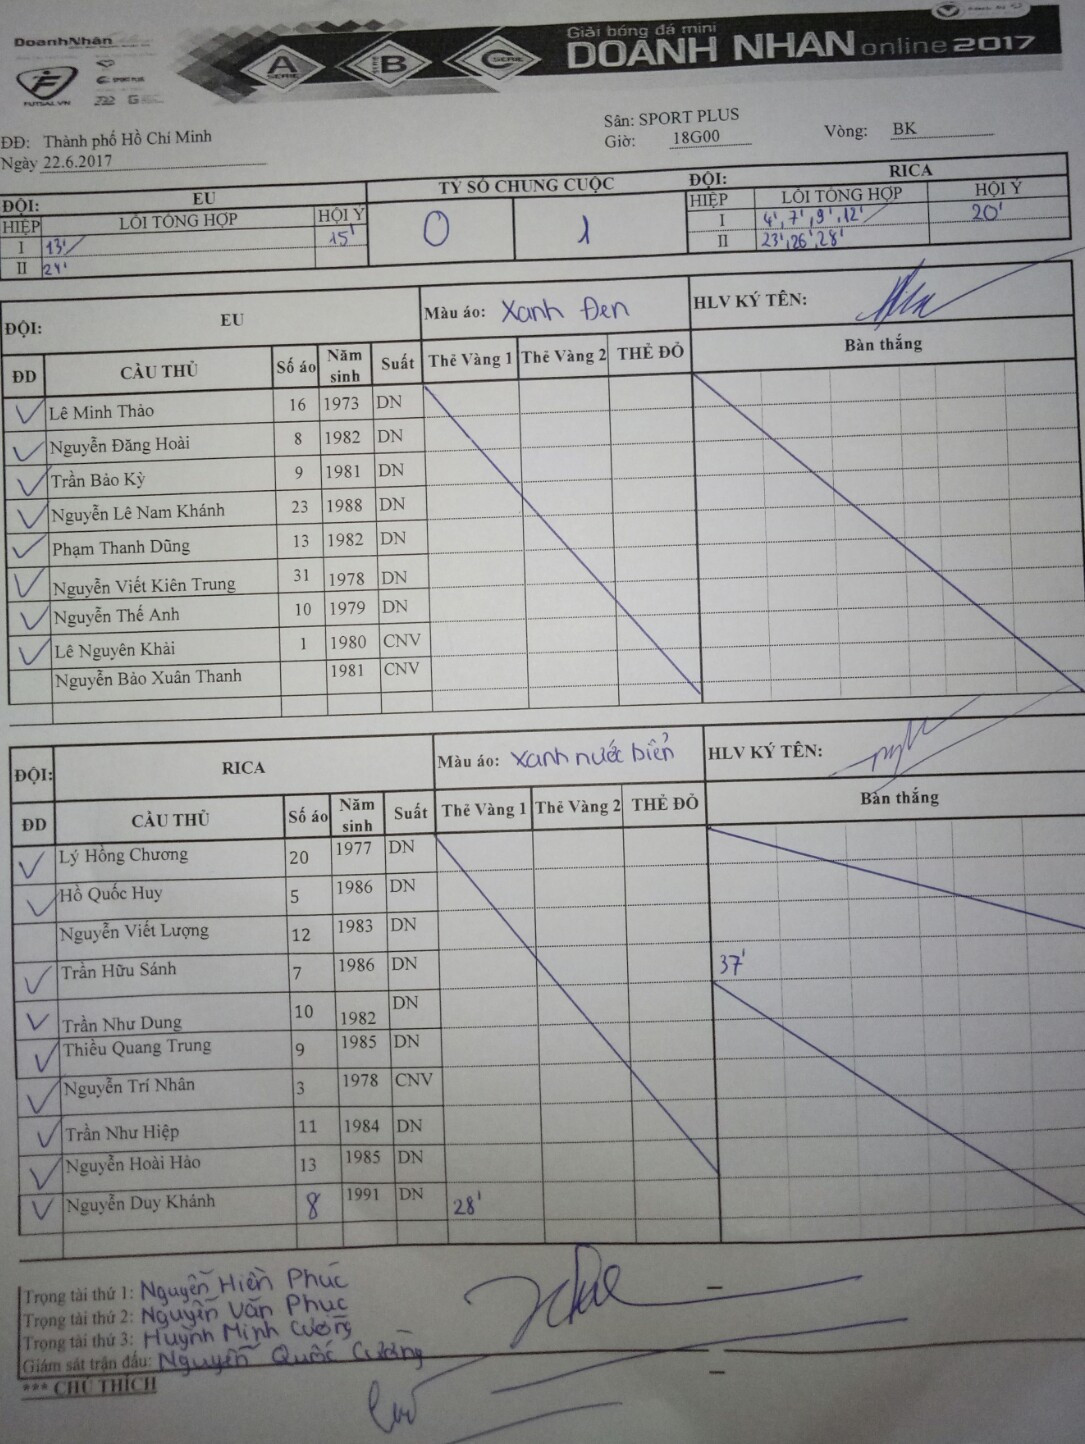 DoanhNhân
FUTSAL.VN
SPORT PLUS
A SERIE
SERIE B
C SERIE
Giải bóng đá mini
DOANH NHÂN online 2017
ĐĐ: Thành phố Hồ Chí Minh
Ngày 22.6.2017
Sân: SPORT PLUS
Giờ: 18G00
Vòng: BK
ĐỘI: EU TỶ SỐ CHUNG CUỘC ĐỘI: RICA
HIỆP LỖI TỔNG HỢP HỘI Ý 0 1 HIỆP LỖI TỔNG HỢP HỘI Ý
I 13' 15' I 4', 7', 9', 12' 20'
II 24' II 23', 26', 28'
ĐỘI: EU Màu áo: Xanh Đen HLV KÝ TÊN:
ĐD CẦU THỦ Số áo Năm sinh Suất Thẻ Vàng 1 Thẻ Vàng 2 THẺ ĐỎ Bàn thắng
Lê Minh Thảo 16 1973 DN
Nguyễn Đăng Hoài 8 1982 DN
Trần Bảo Kỳ 9 1981 DN
Nguyễn Lê Nam Khánh 23 1988 DN
Phạm Thanh Dũng 13 1982 DN
Nguyễn Viết Kiên Trung 31 1978 DN
Nguyễn Thế Anh 10 1979 DN
Lê Nguyên Khải 1 1980 CNV
Nguyễn Bảo Xuân Thanh 1981 CNV
ĐỘI: RICA Màu áo: Xanh nước biển HLV KÝ TÊN:
ĐD CẦU THỦ Số áo Năm sinh Suất Thẻ Vàng 1 Thẻ Vàng 2 THẺ ĐỎ Bàn thắng
Lý Hồng Chương 20 1977 DN
Hồ Quốc Huy 5 1986 DN
Nguyễn Viết Lượng 12 1983 DN
Trần Hữu Sánh 7 1986 DN 37'
Trần Như Dung 10 1982 DN
Thiều Quang Trung 9 1985 DN
Nguyễn Trí Nhân 3 1978 CNV
Trần Như Hiệp 11 1984 DN
Nguyễn Hoài Hảo 13 1985 DN
Nguyễn Duy Khánh 8 1991 DN 28'
Trọng tài thứ 1: Nguyễn Hiền Phúc
Trọng tài thứ 2: Nguyễn Văn Phục
Trọng tài thứ 3: Huỳnh Minh Cường
Giám sát trận đấu: Nguyễn Quốc Cường
*** CHÚ THÍCH